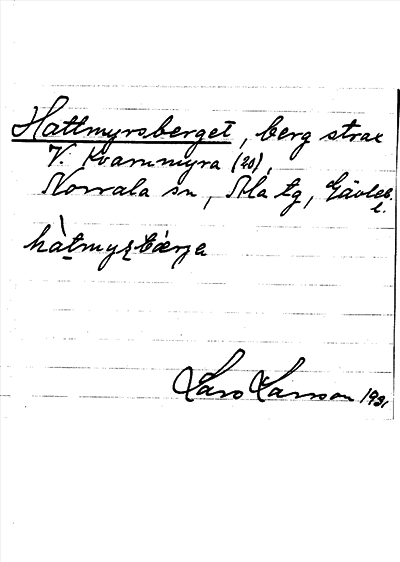 Hattmyrsberget, berg strax
V. Kvarnmyra (20),
Norrala sn, Ala tg, Gävleb. l.
hàtmyṣbærja
Lars Larsson 1931